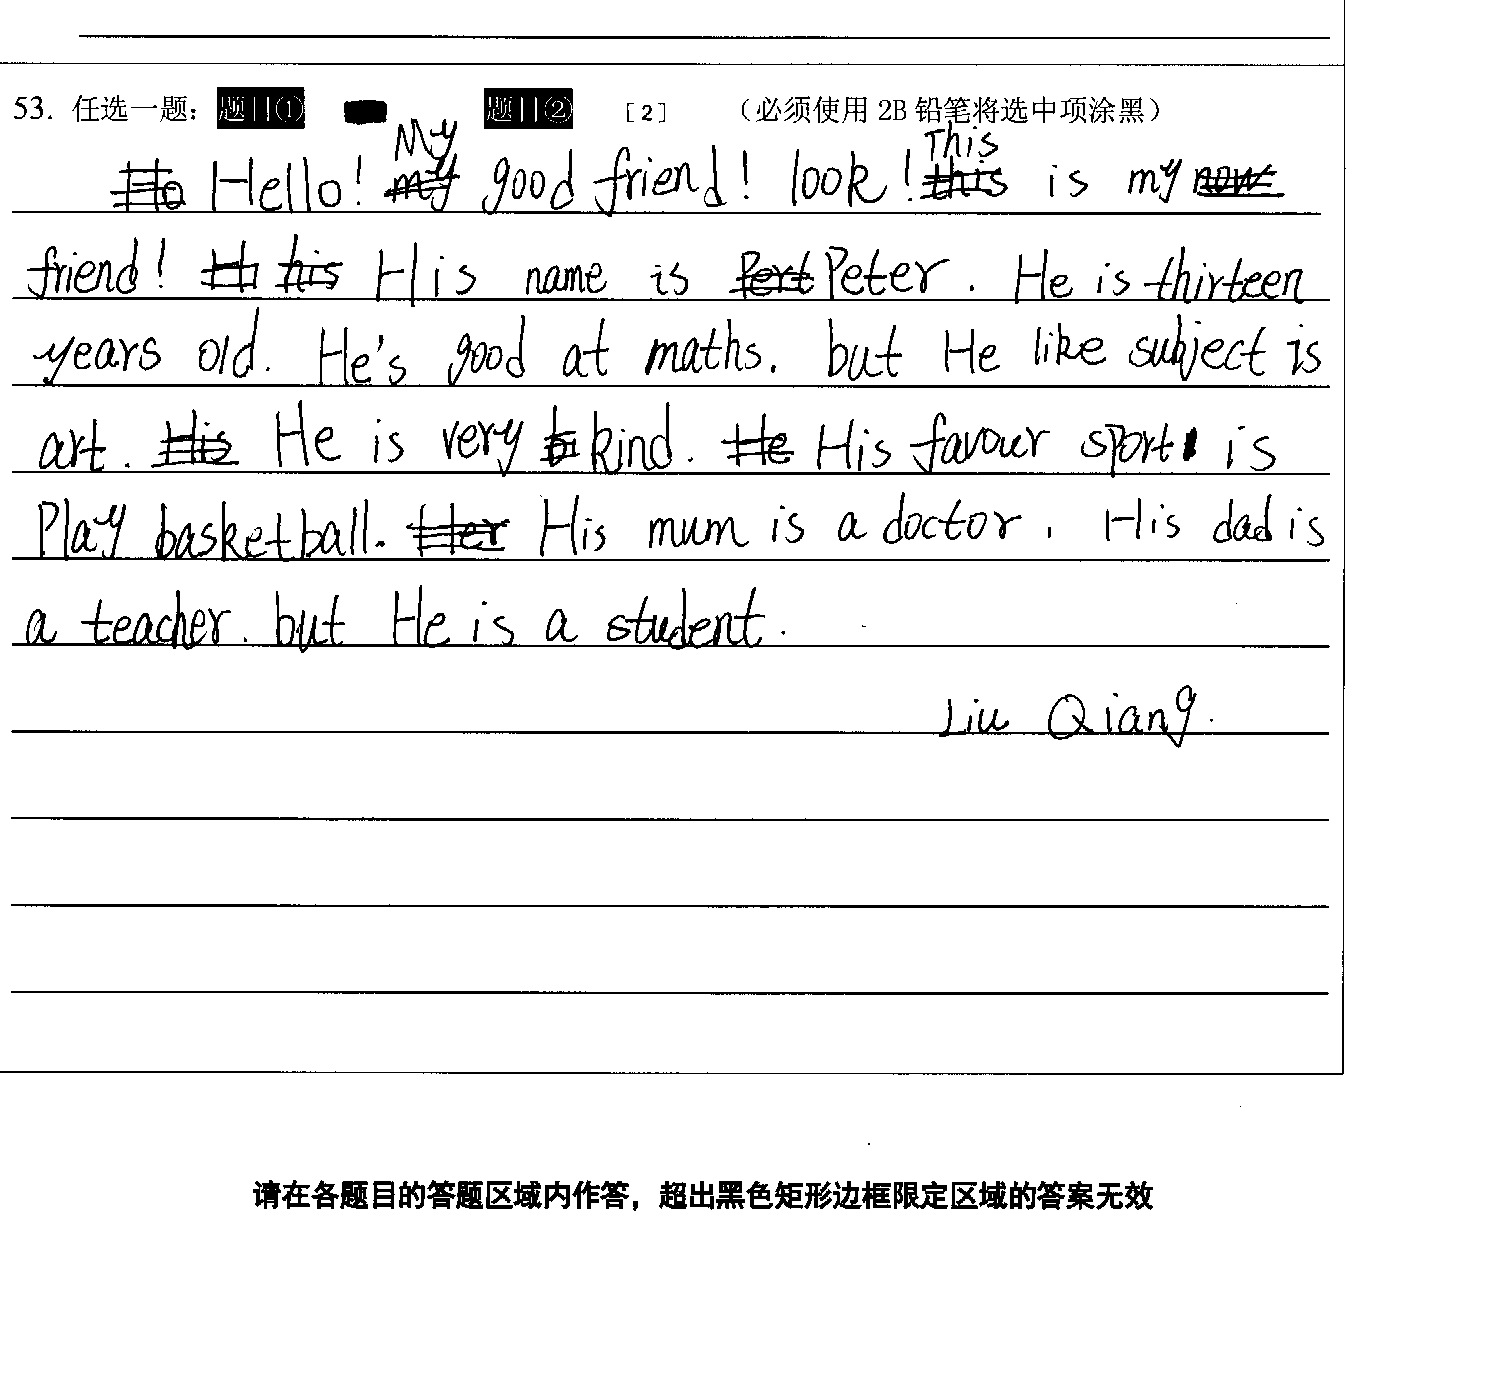 53. 任选一题： 题目① 题目② [2] （必须使用 2B 铅笔将选中项涂黑）
Hello! My good friend! look! This is my
friend! His name is Peter. He is thirteen
years old. He's good at maths. but He like subject is
art. He is very kind. His favour sport is
Play basketball. His mum is a doctor. His dad is
a teacher. but He is a student.
Liu Qiang.
请在各题目的答题区域内作答，超出黑色矩形边框限定区域的答案无效